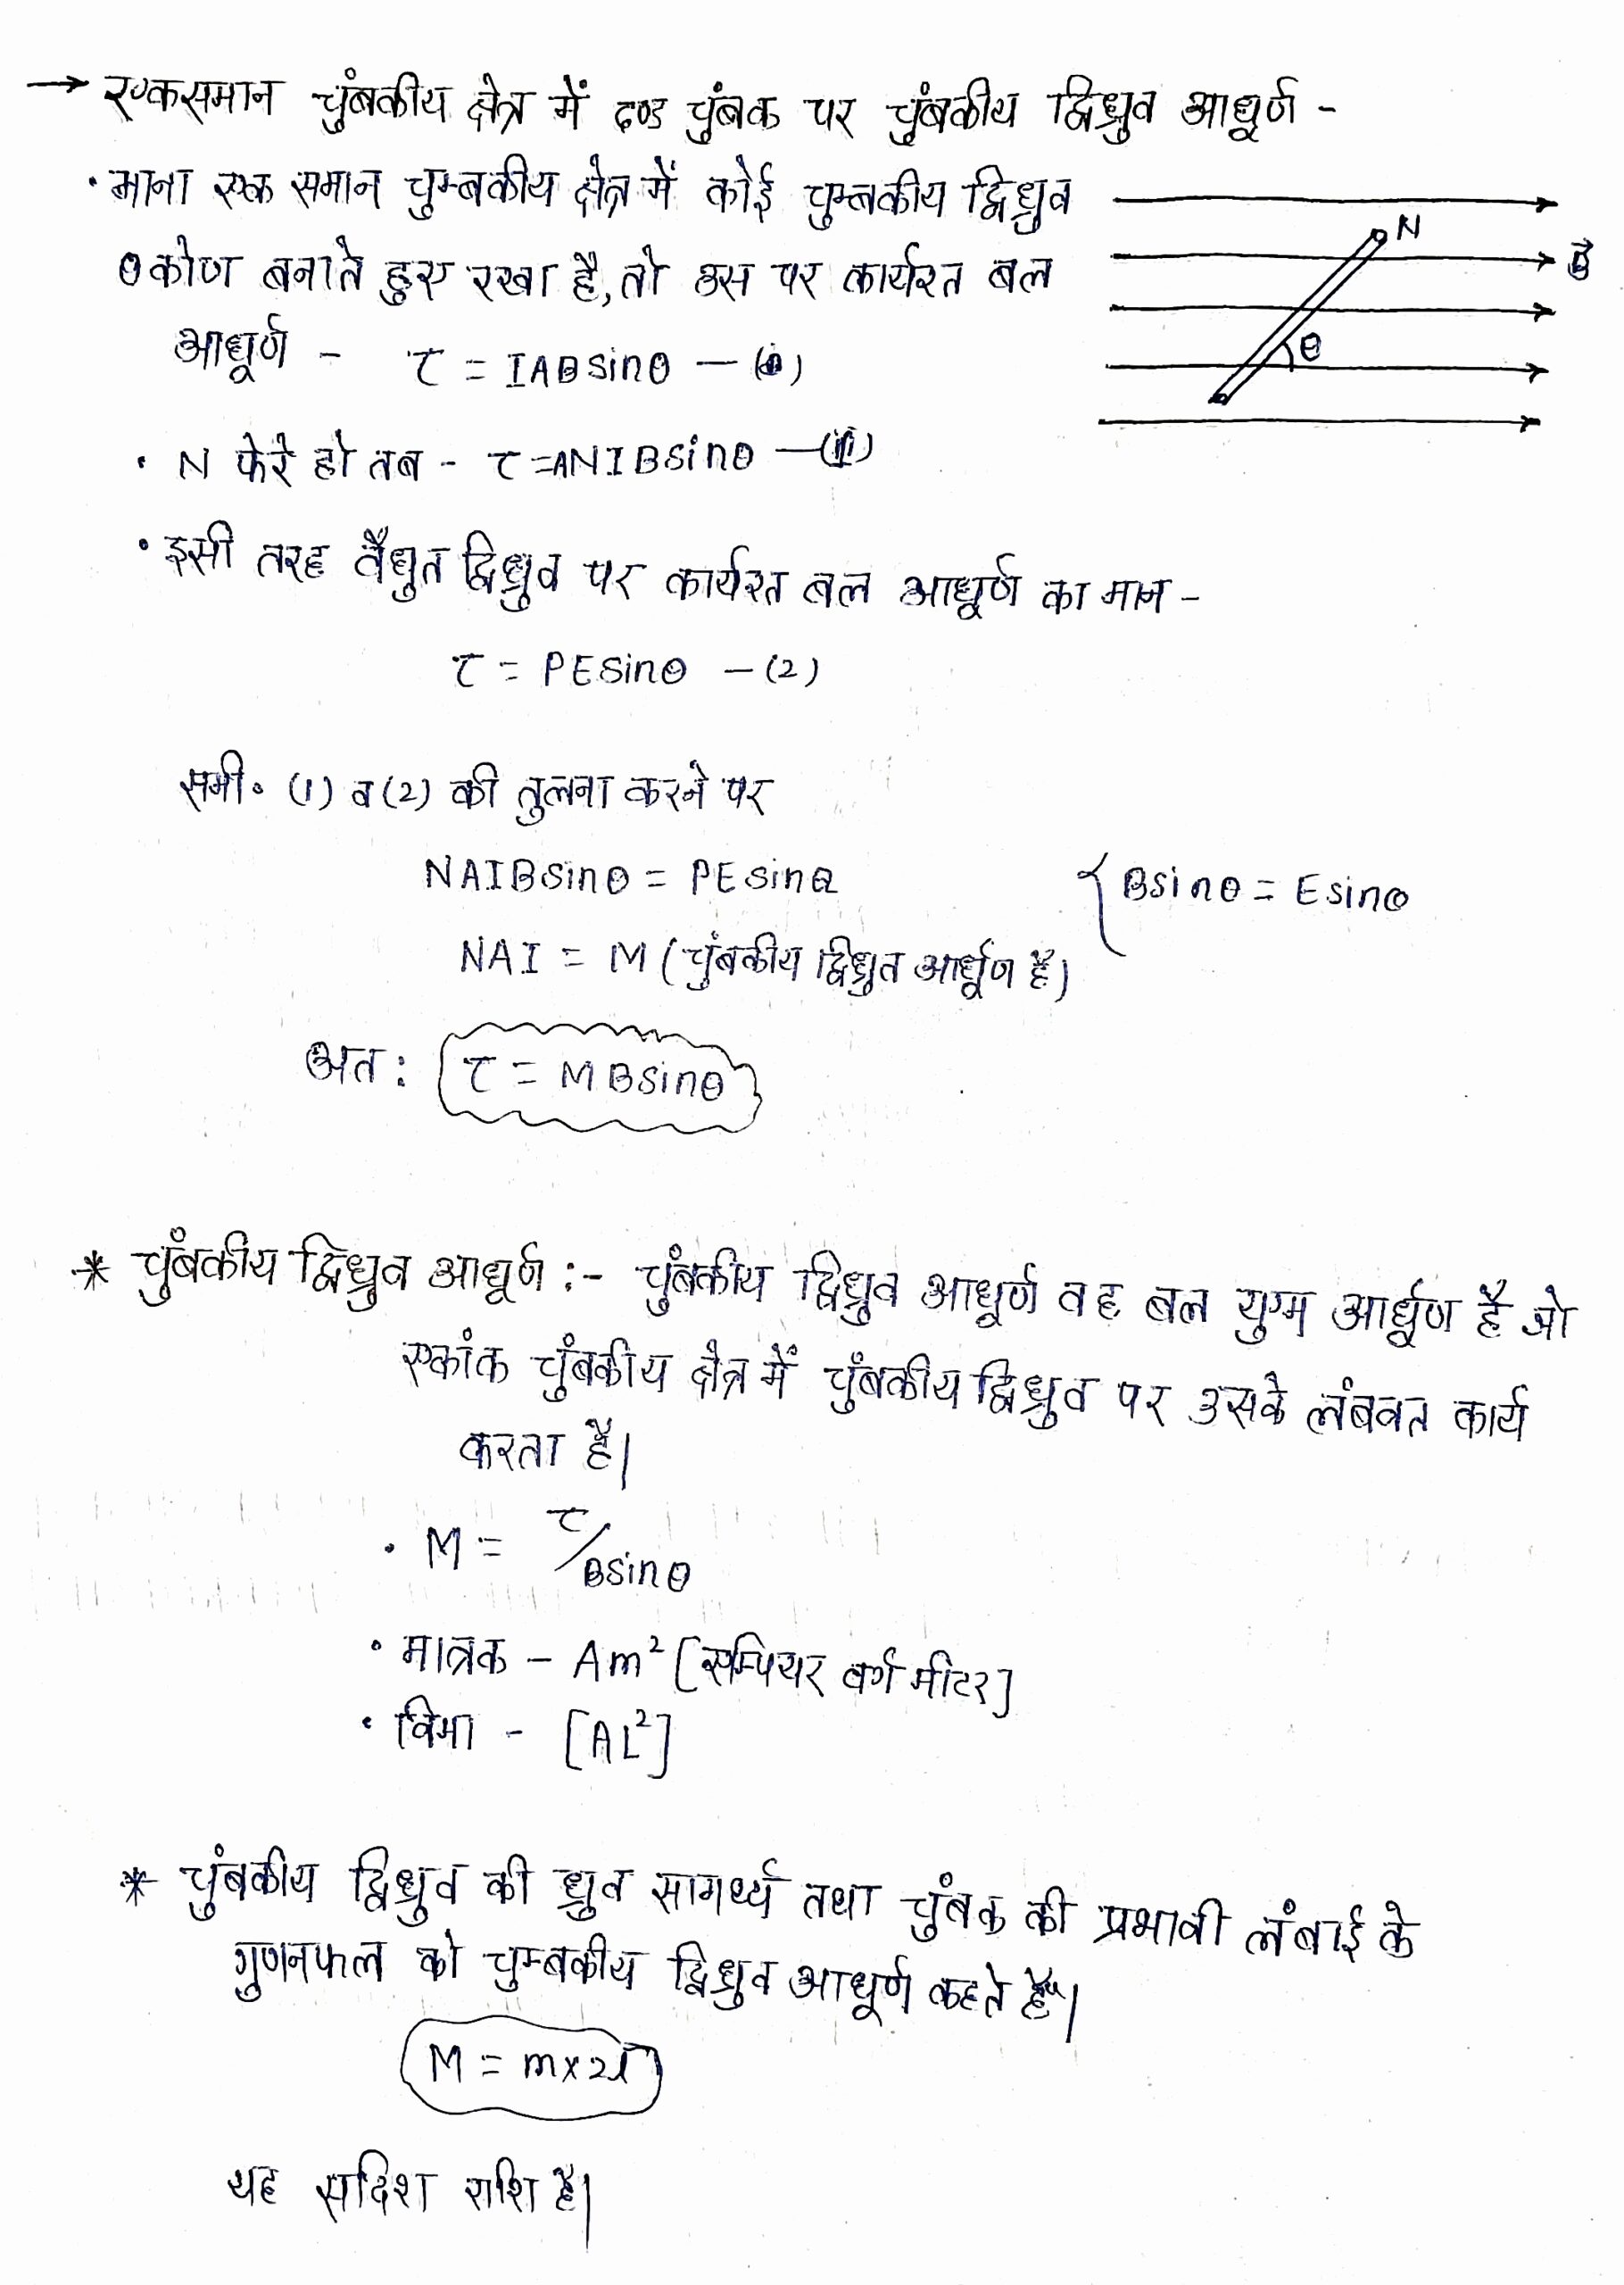 → एकसमान चुंबकीय क्षेत्र में दण्ड चुंबक पर चुंबकीय द्विध्रुव आधूर्ण -
· माना एक समान चुम्बकीय क्षेत्र में कोई चुम्बकीय द्विध्रुव
θ कोण बनाते हुए रखा है, तो उस पर कार्यरत बल
आधूर्ण - τ = IABsinθ —
N
B⃗
θ
· N फेरे हो तब - τ =ANIBsinθ —
· इसी तरह वैधुत द्विध्रुव पर कार्यरत बल आधूर्ण का मान -
τ = PEsinθ - (2)
समी. (1) व (2) की तुलना करने पर
NAIBsinθ = PEsinθ { Bsinθ = Esinθ
NAI = M (चुंबकीय द्विध्रुव आर्धूण है)
अत: τ = MBsinθ
* चुंबकीय द्विध्रुव आधूर्ण :- चुंबकीय द्विध्रुव आधूर्ण वह बल युग्म आर्धूण है जो
एकांक चुंबकीय क्षेत्र में चुंबकीय द्विध्रुव पर उसके लंबवत कार्य
करता है|
· M = τ/Bsinθ
· मात्रक - Am² [एम्पियर वर्ग मीटर]
· विमा - [AL²]
* चुंबकीय द्विध्रुव की ध्रुव सामर्थ्य तथा चुंबक की प्रभावी लंबाई के
गुणनफल को चुम्बकीय द्विध्रुव आधूर्ण कहते हैं|
M = m×2l
यह सदिश राशि है|